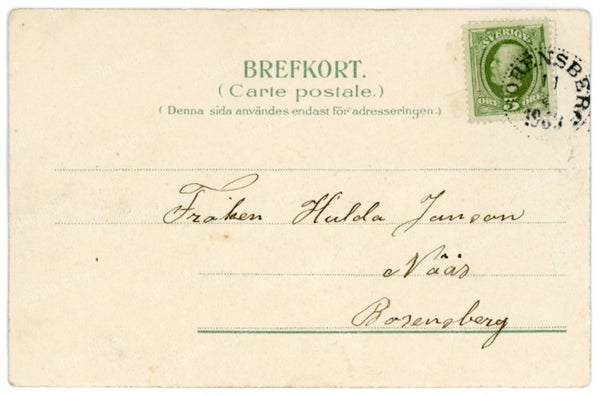 BREFKORT.
(Carte postale.)
(Denna sida användes endast för adresseringen.)
SVERIGE
Fröken Hulda Janson
Nääs
Borensberg